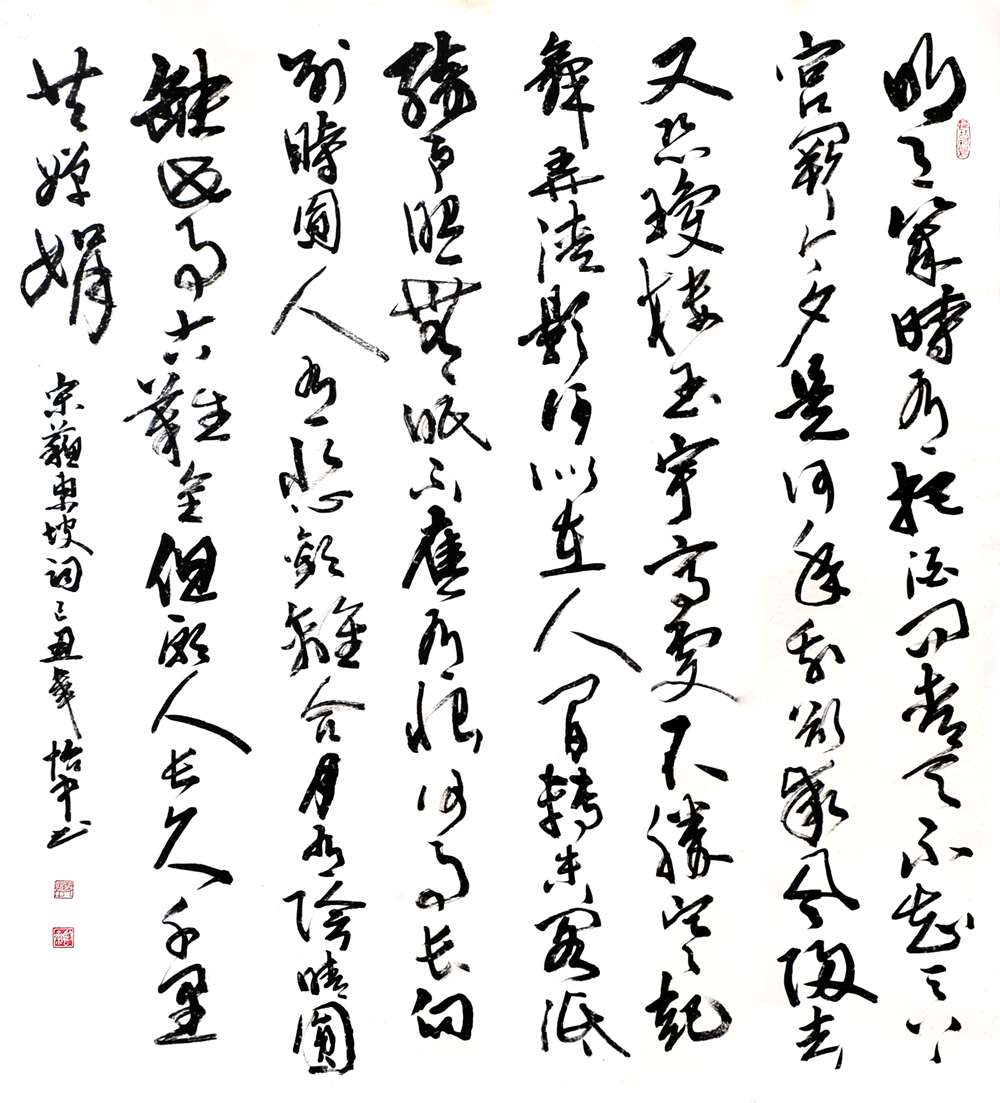 明月幾時有把酒問青天不知天上
宮闕今夕是何年我欲乘風歸去
又恐瓊樓玉宇高處不勝寒起
舞弄清影何似在人間轉朱閣低
綺户照無眠不應有恨何事長向
别時圓人有悲歡離合月有陰晴圓
缺此事古難全但願人長久千里
共嬋娟
宋蘇東坡詞己丑年怡中书